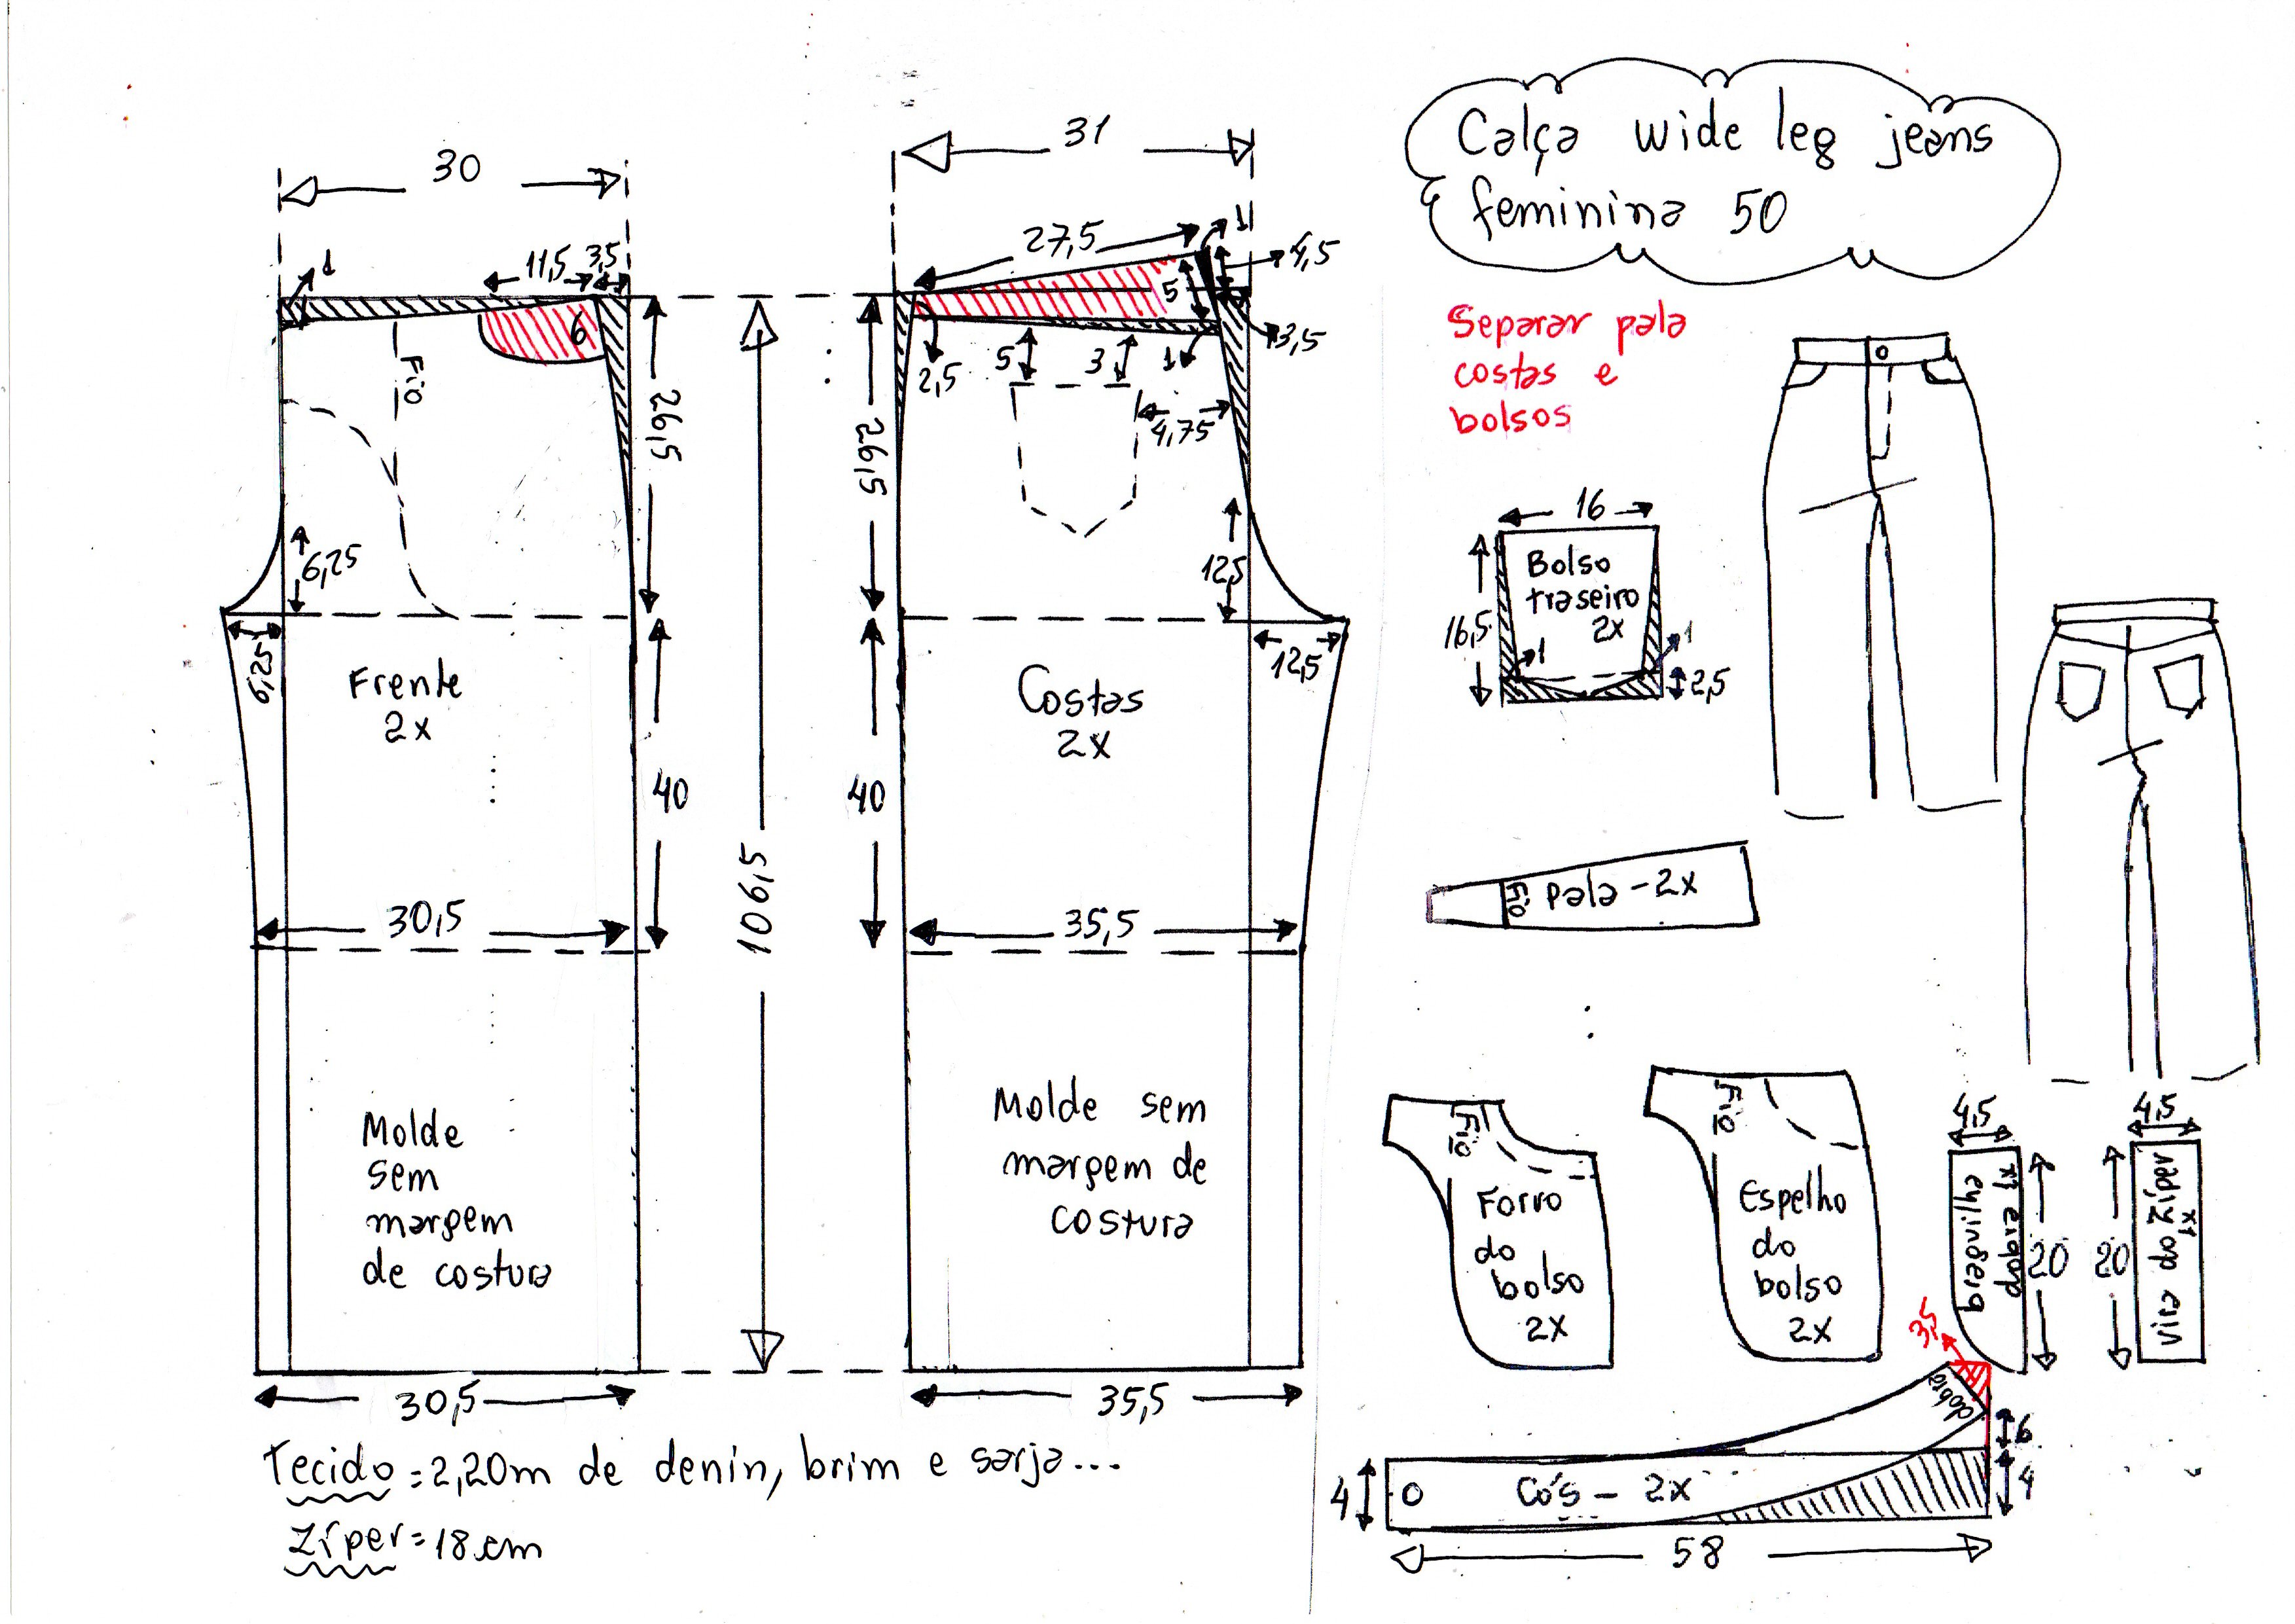 Calça wide leg jeans
feminina 50
30
11,5
3,5
1
6
Fio
26,5
6,25
6,25
Frente
2x
40
30,5
Molde
sem
margem
de costura
30,5
106,5
31
27,5
1
4,5
5
3,5
2,5
5
3
1
4,75
26,5
12,5
12,5
Costas
2x
40
35,5
Molde sem
margem de
costura
35,5
Separar pala
costas e
bolsos
16
Bolso
traseiro
2x
16,5
1
1
2,5
Fio
Pala - 2x
Fio
Forro
do
bolso
2x
Fio
Espelho
do
bolso
2x
4,5
dobra 1x
braguilha
20
4,5
vira do zíper
1x
20
3,5
dobra
6
4
4
Cós - 2x
58
Tecido = 2,20m de denin, brim e sarja...
Zíper = 18 cm